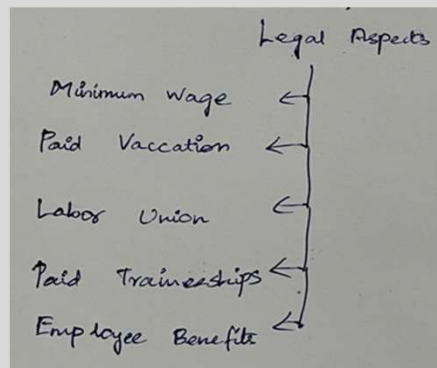 Legal Aspects
Minimum Wage
Paid Vaccation
Labor Union
Paid Traineeships
Employee Benefits